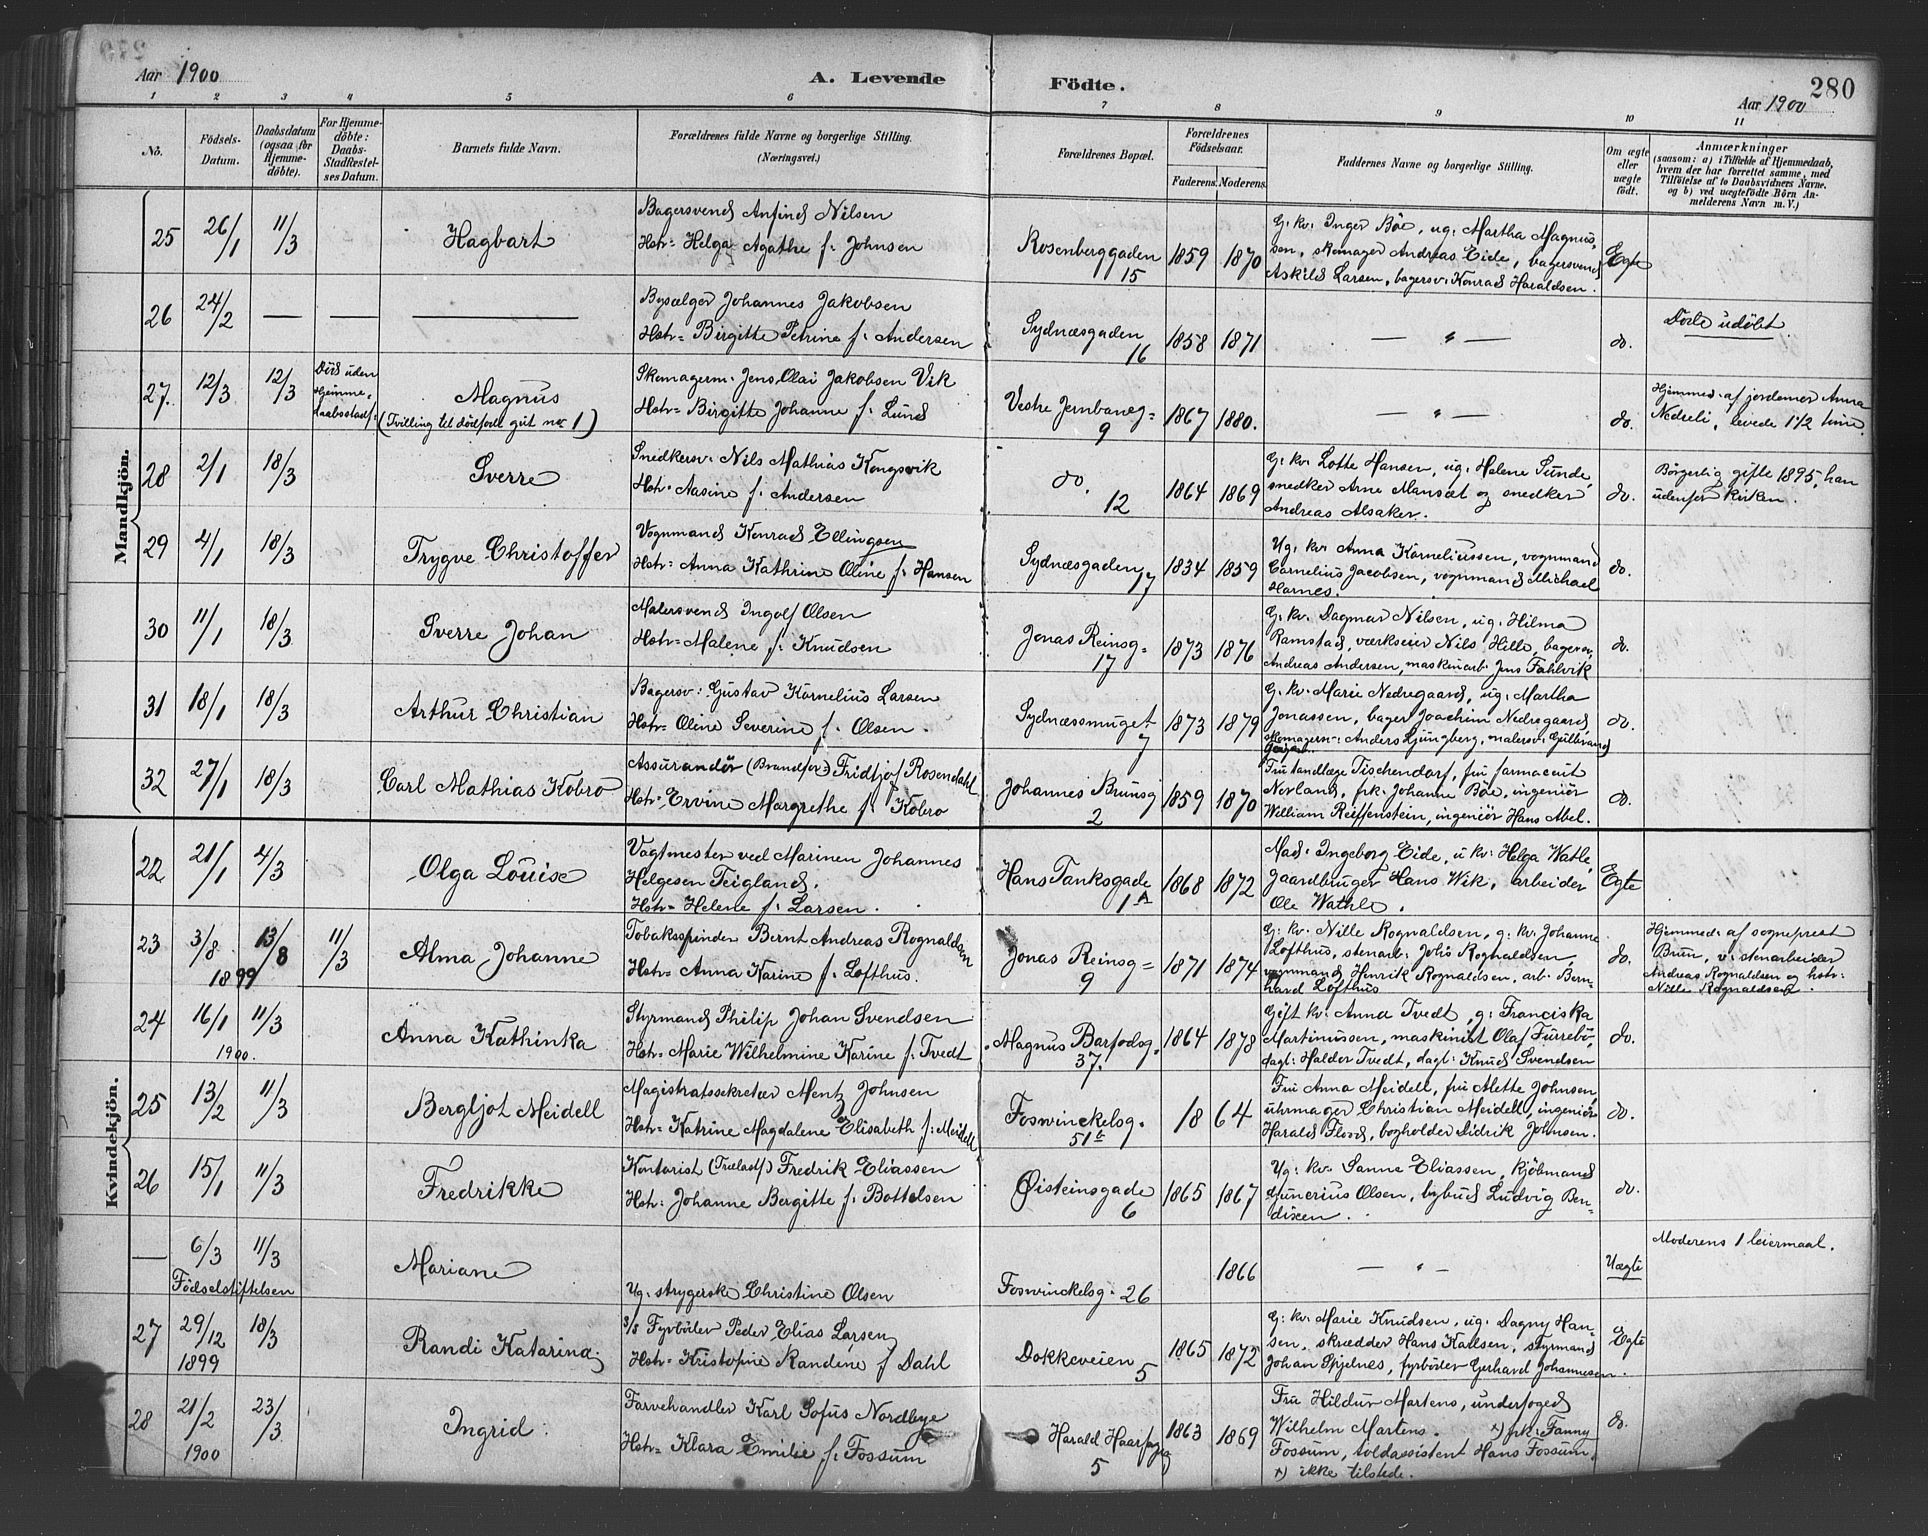 Aar 1900
A. Levende Födte.
280
Aar 1900
1 2 3 4 5 6 7 8 9 10 11
No.
Födsels-Datum.
Daabsdatum (ogsaa for Hjemme-döbte).
For Hjemme-döbte: Daabs-Stadfæstel-ses Datum.
Barnets fulde Navn.
Forældrenes fulde Navne og borgerlige Stilling.
(Næringsvei.)
Forældrenes Bopæl.
Forældrenes Födselsaar.
Faderens. Moderens.
Faddernes Navne og borgerlige Stilling.
Om ægte eller uægte födt.
Anmærkninger
(saasom: a) i Tilfælde af Hjemmedaab,
hvem der har forrettet samme, med
Tilföielse af to Daabsvidners Navne.
og b) ved uægtefödte Börn An-
melderens Navn m. V.)
Mandkjön.
25 26/1 11/3 Hagbart
Bagersvend Anfind Nilsen
Hstr= Helga Agathe f. Johnsen
Rosenberggaden 15
1859 1870
G. kv. Inger Böe, ug. Martha Magnus-
sen, skomager Andreas Eide, bagersvend
Askild Larsen, bagersv. Konrad Haraldsen.
Egte
26 24/2 — — —
Bysælger Johannes Jakobsen
Hstr= Birgitte Petrine f. Andersen
Sydnæsgaden 16
1858 1871
— " —
do.
Dødf udöbt
27. 12/3 12/3
Död uden Hjemme-daabsstadf.
Magnus
(Tvilling til dødfödt gut no 1)
Skomagerm. Jens Olai Jakobsen Vik
Hstr= Birgitte Johanne f. Lund
Vestre Jernbaneg= 9
1867 1880.
— " —
do.
Hjemmed. af jordemor Anna
Nedreli, levede 1 1/2 time.
28 2/1 18/3 Sverre
Snedkersv. Nils Mathias Kongsvik
Hstr. Aasine f. Andersen
do. 12
1864 1869
G. kv. Lotte Hansen, ug. Helene Sunde,
snedker Arne Mansæt og snedker
Andreas Alsaker.
do.
Börgerlig gifte 1895, han
udenfor kirken.
29 4/1 18/3 Trygve Christoffer
Vognmand Konrad Ellingsen
Hstr= Anna Kathrine Oline f. Hansen
Sydnæsgaden 17
1834 1859
Ug. kv. Anna Korneliussen, vognmand
Cornelius Jacobsen, vognmand Michael
Hornes.
do.
30 11/1 18/3 Sverre Johan
Malersvend Ingolf Olsen
Hstr= Malene f. Knudsen
Jonas Reinsg= 17
1873 1876
G. kv. Dagmar Nilsen, ug. Hilma
Ramstad, værkseier Nils Hille, bagersv.
Andreas Andersen, maskinarb. Jens Fahlvik
do.
31 18/1 18/3 Arthur Christian
Bagersv: Gustav Kornelius Larsen
Hstr= Oline Severine f. Olsen.
Sydnæssmuget 7
1873 1879
G. kv. Marie Nedregaard, ug. Martha
Jonassen, bager Joachim Nedregaard,
skomagersv: Anders Ljungberg, malersv. Gulbrand
do.
32 27/1 18/3 Carl Mathias Kobro
Assurandör (Brandfors.) Fridtjof Rosendahl
Hstr. Ervine Margrethe f. Kobro
Johannes Brunsg 2
1859 1870
Fru tandlæge Tischendorf, fru farmaceut
Norland, frk. Johanne Böe, ingeniör
William Reiffenstein, ingeniör Hans Abel.
do.
Kvindekjön.
22 21/1 4/3 Olga Louise
Vagtmester ved Marinen Johannes
Helgesen Teigland.
Hstr= Helene f. Larsen.
Hans Tanksgade 1A
1868 1872
Mad. Ingeborg Eide, u kv. Helga Watle,
gaardbruger Hans Wik, arbeider
Ole Wathle.
Egte
23 3/8 1899 13/8 11/3 Alma Johanne
Tobaksspinder Bernt Andreas Rognaldsen
Hstr= Anna Karine f. Lofthus.
Jonas Reinsg= 9
1871 1874
G. kv. Nille Rognaldsen, g. kv. Johanne
Lofthus, stenarb. Johs Rognaldsen,
vognmand Hinrik Rognaldsen, arb. Bern-
hard Lofthus
do.
Hjemmed. af sogneprest
Bruun, v. stenarbeider
Andreas Rognaldsen og hstr.
Nille Rognaldsen.
24 16/1 1900. 11/3 Anna Kathinka
Styrmand Philip Johan Svendsen
Hstr= Marie Wilhelmine Karine f. Tvedt
Magnus Barfodsg. 37.
1864 1878
Gift kv. Anna Tvedt, g. Franciska
Martinussen, maskinist Olaf Furrebö,
dagl. Haldor Tvedt, dagl. Knud Svendsen
do.
25 13/2 11/3 Bergljot Meidell
Magistratssekretær Mentz Johnsen
Hstr= Katrine Magdalene Elisabeth f. Meidell
Foswinckelsg. 51b
1864
Fru Anna Meidell, fru Alette Johnsen,
uhrmager Christian Meidell, ingeniör
Harald Flood, bogholder Didrik Johnsen.
do.
26 15/1 11/3 Fredrikke
Kontorist (Trælasf) Fredrik Eliassen
Hstr: Johanne Bergitte f. Bottolsen
Øisteinsgade 6
1865 1867
Ug: kv. Sanna Eliassen, kjöbmand
Junerius Olsen, bybud Ludvig Ben-
dixen.
do.
— 6/3 11/3 Mariane
Födselstiftelsen
Ug. strygerske Christine Olsen
Foswinckelsg. 26
1866
— " —
Uægte
Moderens 1 leiermaal.
27 29/12 1899 18/3 Randi Katarina
s/s Fyrböder Peder Elias Larsen
Hstr= Kristofine Randine f Dahl
Dokkeveien 5
1865 1872
G. kv. Marie Knudsen, ug. Dagny Han-
sen, skrædder Hans Karlsen, styrmand
Johan Spjelnes, fyrböder Gerhard Johannesen.
Egte
28 21/2 1900 23/3 Ingrid
Farvehandler Karl Sofus Nordbye
Hstr= Klara Emilie f. Fossum
Harald Haarfagsg 5
1863 1869
Fru Hildur Martens, underfoged
Wilhelm Martens. x) frk: Fanny
Fossum, toldassistent Hans Fossum.
x) ikke tilstede.
do.